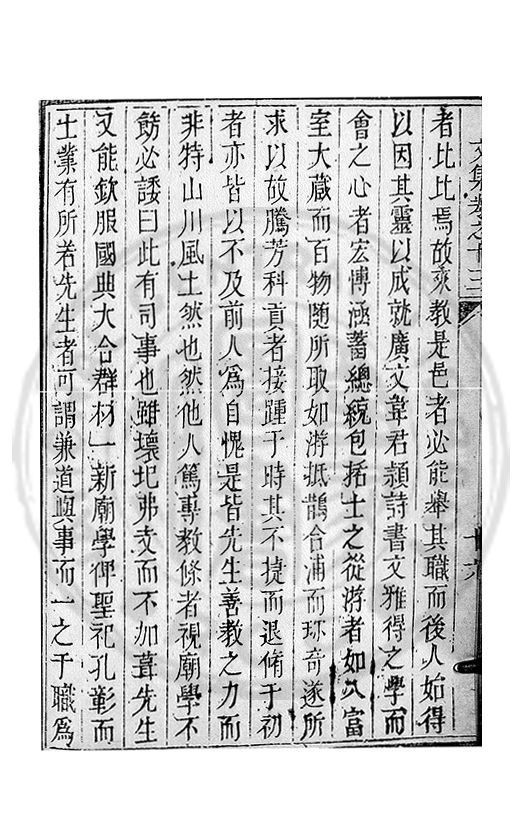 文集卷之十三
十六
者比比焉故來教是邑者必能舉其職而後人始得
以因其靈以成就廣文韋君頴詩書文雅得之學而
會之心者宏博涵蓄總統包括士之從游者如入富
室大藏而百物随所取如游抵鵲合浦而珎奇遂所
求以故騰芳科貢者接踵于時其不捷而退脩于初
者亦皆以不及前人爲自愧是皆先生善教之力而
非特山川風土然也然他人篤專教條者視廟學不
飭必諉曰此有司事也雖壞圮弗支而不加葺先生
又能欽服國典大合群材一新廟學俾聖祀孔彰而
士業有所若先生者可謂兼道與事而一之于職爲